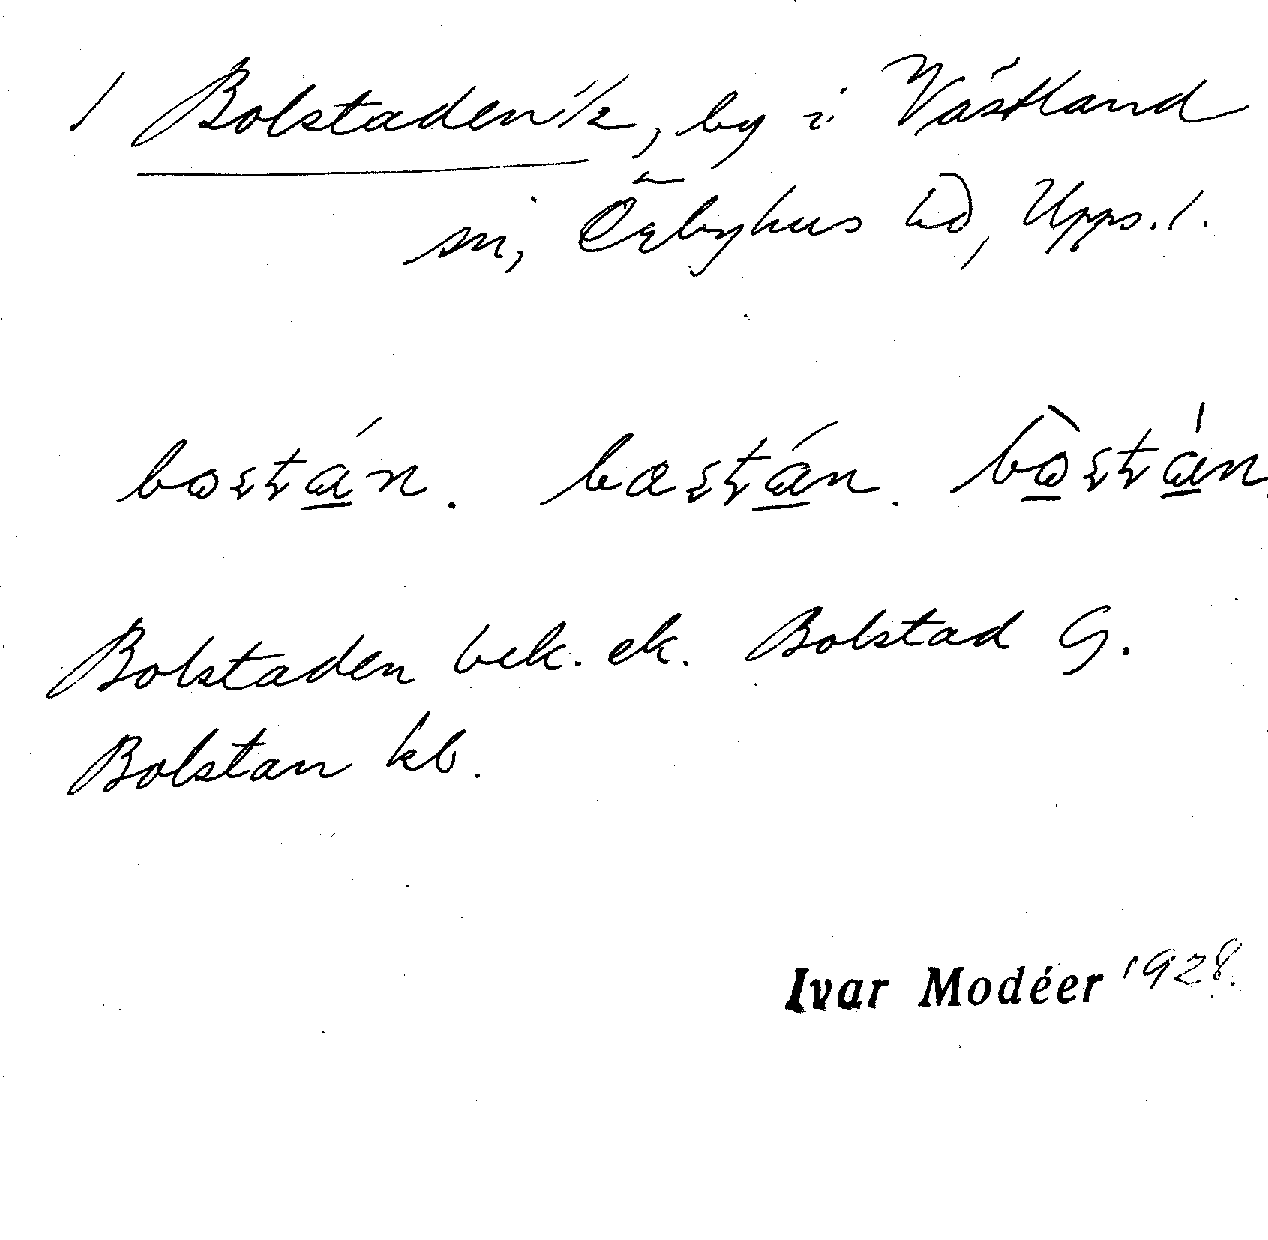 1 Bolstaden ½, by i Västland
sn, Örbyhus hd, Upps. l.
bostán. bæstán. bòstán
Bolstaden bek. ek. Bolstad G.
Bolstan kb.
Ivar Modéer 1928.